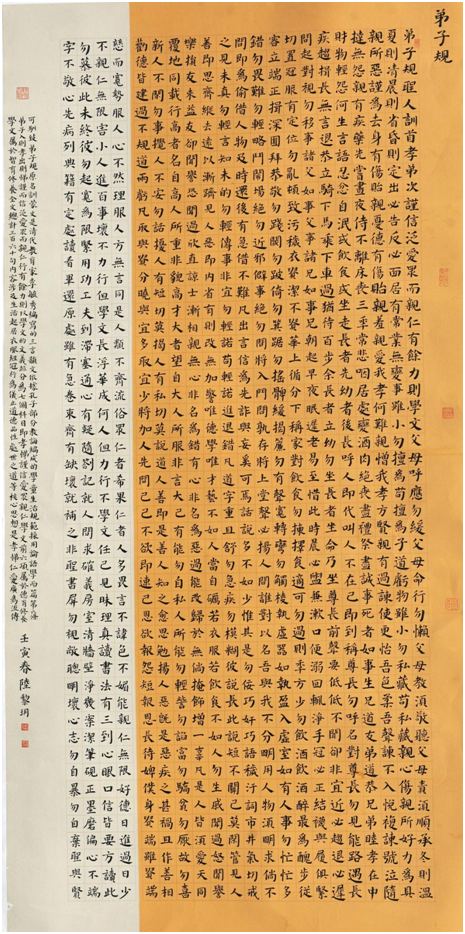 弟子規
弟子規聖人訓首孝弟次謹信泛愛衆而親仁有餘力則學文父母呼應勿緩父母命行勿懶父母教須敬聽父母責須順承冬則溫
夏則凊晨則省昏則定出必告反必面居有常業無變事雖小勿擅為苟擅為子道虧物雖小勿私藏苟私藏親心傷親所好力為具
親所惡謹為去身有傷貽親憂德有傷貽親羞親愛我孝何難親憎我孝方賢親有過諫使更怡吾色柔吾聲諫不入悅復諫號泣隨
撻無怨親有疾藥先嘗晝夜侍不離床喪三年常悲咽居處變酒肉絕喪盡禮祭盡誠事死者如事生兄道友弟道恭兄弟睦孝在中
財物輕怨何生言語忍忿自泯或飲食或坐走長者先幼者後長呼人即代叫人不在己即到稱尊長勿呼名對尊長勿見能路遇長
疾趨揖長無言退恭立騎下馬乘下車過猶待百步餘長者立幼勿坐長者坐命乃坐尊長前聲要低低不聞卻非宜近必趨退必遲
問起對視勿移事諸父如事父事諸兄如事兄朝起早夜眠遲老易至惜此時晨必盥兼漱口便溺回輒淨手冠必正結襪與履俱緊
切置冠服有定位勿亂頓致污穢衣貴潔不貴華上循分下稱家對飲食勿揀擇食適可勿過則年方少勿飲酒飲酒醉最為醜步從
容立端正揖深圓拜恭敬勿踐閾勿跛倚勿箕踞勿搖髀緩揭簾勿有聲寬轉彎勿觸棱執虛器如執盈入虛室如有人事勿忙忙多
錯勿畏難勿輕略鬥鬧場絕勿近邪僻事絕勿問將入門問孰存將上堂聲必揚人問誰對以名吾與我不分明用人物須明求倘不
問即為偷借人物及時還後有急借不難凡出言信為先詐與妄奚可焉話說多不如少惟其是勿佞巧奸巧語穢污詞市井氣切戒
之見未真勿輕言知未的勿輕傳事非宜勿輕諾苟輕諾進退錯凡道字重且舒勿急疾勿模糊彼說長此說短不關己莫閒管見人
善即思齊縱去遠以漸躋見人惡即內省有則改無加警唯德學唯才藝不如人當自礪若衣服若飲食不如人勿生慼聞過怒聞譽
樂損友來益友卻聞譽恐聞過欣直諒士漸相親無心非名為錯有心非名為惡過能改歸於無倘掩飾增一辜凡是人皆須愛天同
覆地同載行高者名自高人所重非貌高才大者望自大人所服非言大己有能勿自私人所能勿輕訾勿諂富勿驕貧勿厭故勿喜
新人不閒勿事攪人不安勿話擾人有短切莫揭人有私切莫說道人善即是善人知之愈思勉揚人惡既是惡疾之甚禍且作善相
勸德皆建過不規道兩虧凡取與貴分曉與宜多取宜少將加人先問己己不欲即速已恩欲報怨短報恩長待婢僕身貴端雖貴端
慈而寬勢服人心不然理服人方無言同是人類不齊流俗衆仁者希果仁者人多畏言不諱色不媚能親仁無限好德日進過日少
不親仁無限害小人進百事壞不力行但學文長浮華成何人但力行不學文任己見昧理真讀書法有三到心眼口信皆要方讀此
勿慕彼此未終彼勿起寬為限緊用功工夫到滯塞通心有疑隨劄記就人問求確義房室清牆壁淨几案潔筆硯正墨磨偏心不端
字不敬心先病列典籍有定處讀看畢還原處雖有急卷束齊有缺壞就補之非聖書屏勿視蔽聰明壞心志勿自暴勿自棄聖與賢
可馴致弟子規原名訓蒙文是清代教育家李毓秀編寫的三言韻文依據孔子部分教誨編成的學童生活規範採用論語學而篇第
弟子入則孝出則悌謹而信泛愛衆而親仁行有餘力則以學文的文義總分為七個科目即孝悌謹信愛衆親仁學文前六項屬於德育修養
學文屬於智育修養全文總計三百六十句內容涉及生活起居衣服紐冠行為儀止道德品性處世之道等核心思想是孝悌仁愛廣為流傳
壬寅春陸黎明